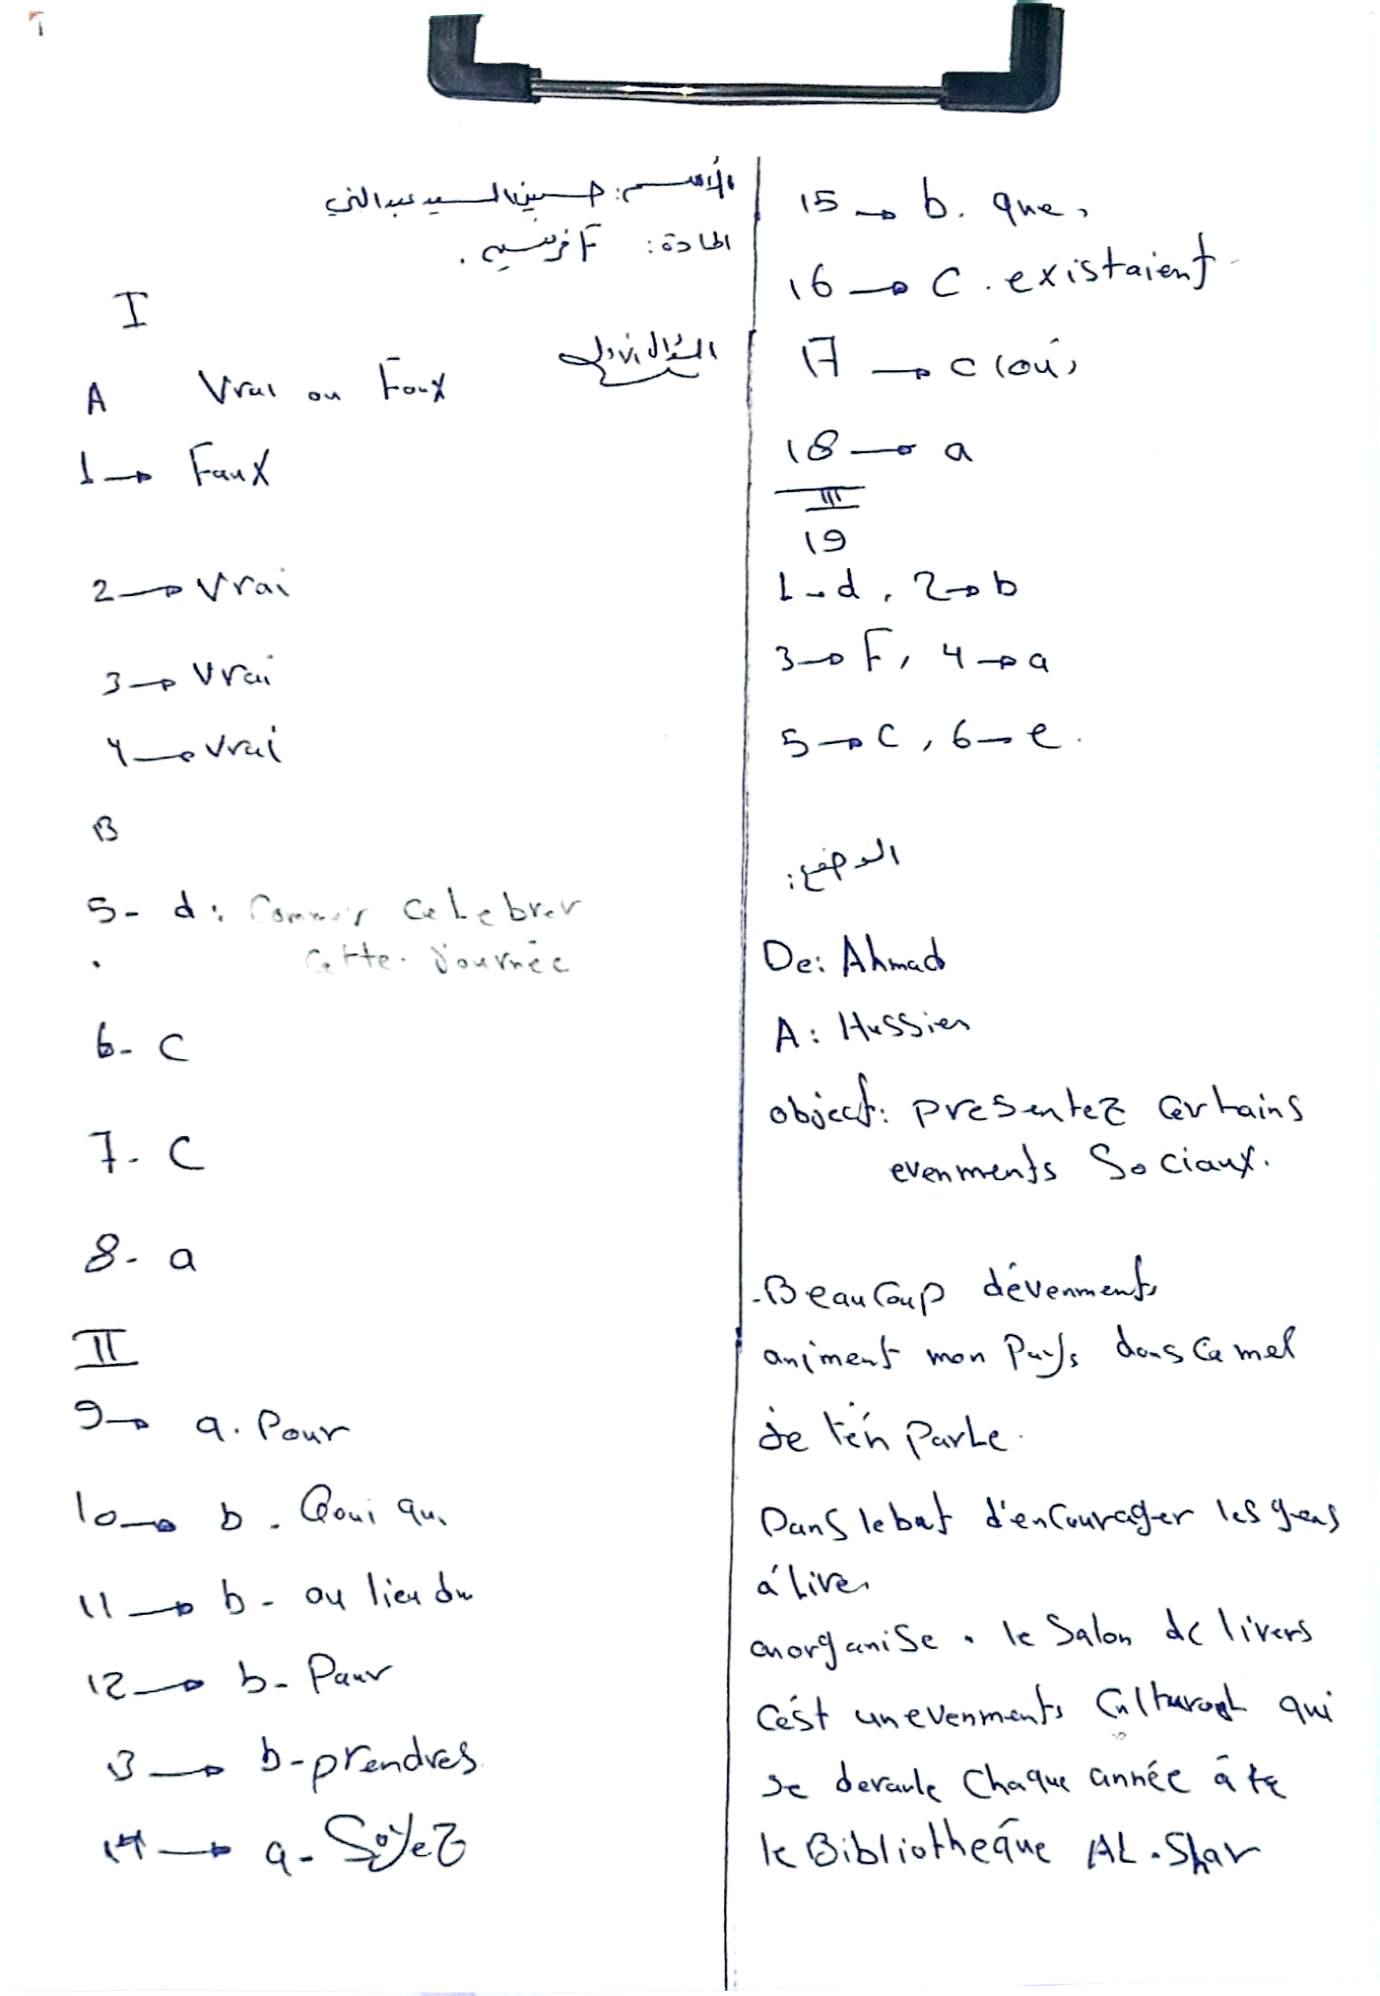 الأسم: حسين السيد عبد النبي
المادة: F فرنسيه.
I
السؤال الأول
A Vrai ou Faux
1 → Faux
2 → Vrai
3 → Vrai
4 → Vrai
B
5- d: Celebrer
Cette Journée
6- C
7- C
8- a
II
9 → a. Pour
10 → b. Qoui qu
11 → b- au lieu du
12 → b- Pour
13 → b- prendres
14 → a- Soyez
15 → b. que,
16 → C. existaient
17 → C (où)
18 → a
III
19
1 → d, 2 → b
3 → F, 4 → a
5 → C, 6 → e.
الوضع:
De: Ahmad
A: Hussien
object: presentez certains
evenments Sociaux.
-Beaucoup d'évenments
animent mon Pays dans ce mel
Je t'én Parle.
Dans le but d'encourager les gens
á Lire,
on organise. le Salon de livers
C'ést un evenments Culturael qui
se deraule Chaque année à
le Bibliotheque AL. Shar